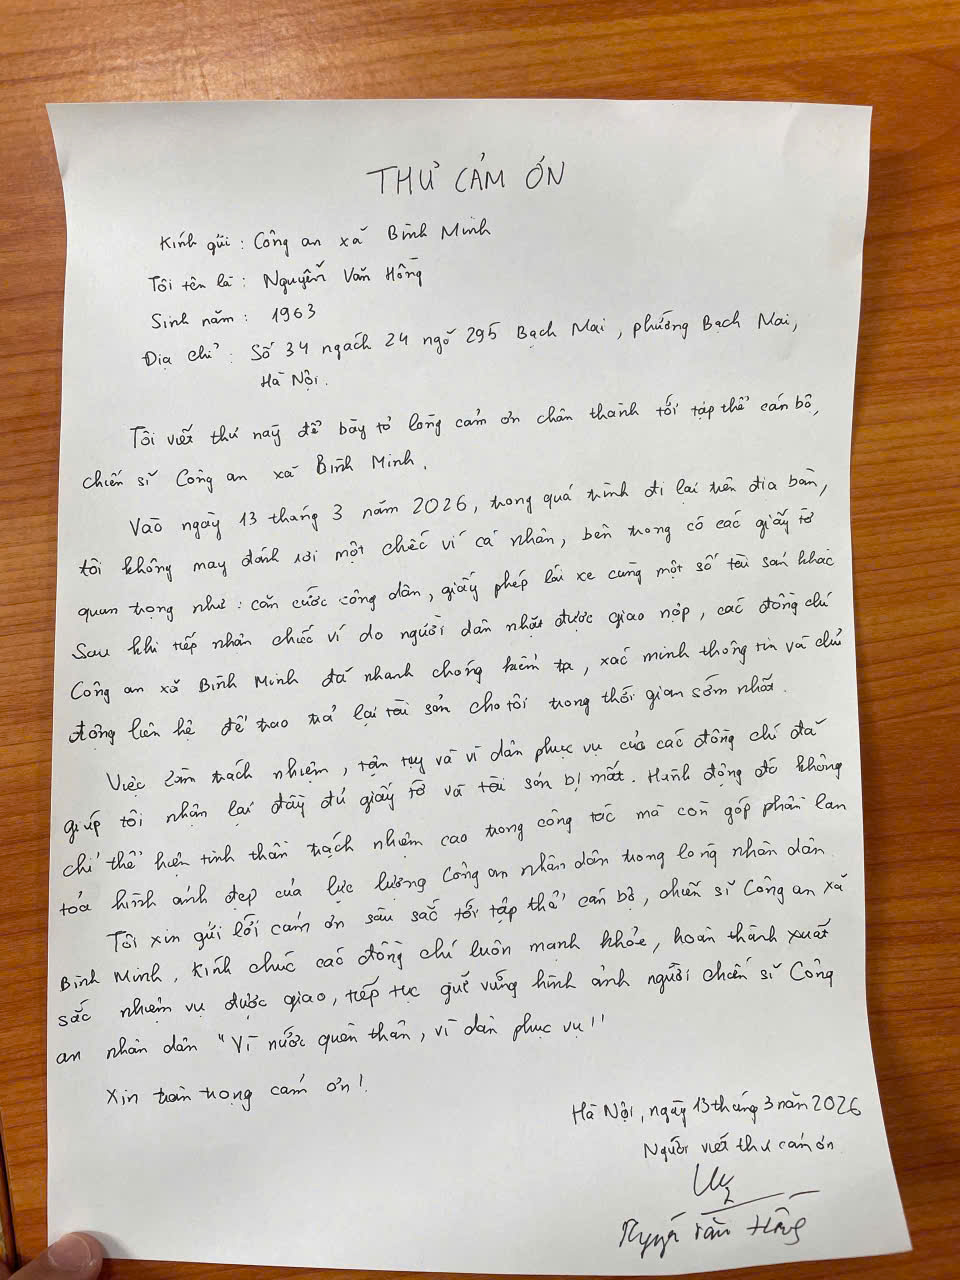 THƯ CẢM ƠN
Kính gửi : Công an xã Bình Minh
Tôi tên là : Nguyễn Văn Hồng
Sinh năm : 1963
Địa chỉ : Số 34 ngách 24 ngõ 295 Bạch Mai, phường Bạch Mai,
Hà Nội.
Tôi viết thư này để bày tỏ lòng cảm ơn chân thành tới tập thể cán bộ,
chiến sĩ Công an xã Bình Minh.
Vào ngày 13 tháng 3 năm 2026, trong quá trình đi lại trên địa bàn,
tôi không may đánh rơi một chiếc ví cá nhân, bên trong có các giấy tờ
quan trọng như : căn cước công dân, giấy phép lái xe cùng một số tài sản khác
Sau khi tiếp nhận chiếc ví do người dân nhặt được giao nộp, các đồng chí
Công an xã Bình Minh đã nhanh chóng kiểm tra, xác minh thông tin và chủ
động liên hệ để trao trả lại tài sản cho tôi trong thời gian sớm nhất.
Việc làm trách nhiệm, tận tụy và vì dân phục vụ của các đồng chí đã
giúp tôi nhận lại đầy đủ giấy tờ và tài sản bị mất. Hành động đó không
chỉ thể hiện tinh thần trách nhiệm cao trong công tác mà còn góp phần lan
tỏa hình ảnh đẹp của lực lượng Công an nhân dân trong lòng nhân dân.
Tôi xin gửi lời cảm ơn sâu sắc tới tập thể cán bộ, chiến sĩ Công an xã
Bình Minh. Kính chúc các đồng chí luôn mạnh khỏe, hoàn thành xuất
sắc nhiệm vụ được giao, tiếp tục giữ vững hình ảnh người chiến sĩ Công
an nhân dân "Vì nước quên thân, vì dân phục vụ!"
Xin trân trọng cảm ơn!
Hà Nội, ngày 13 tháng 3 năm 2026
Người viết thư cảm ơn
Nguyễn Văn Hồng